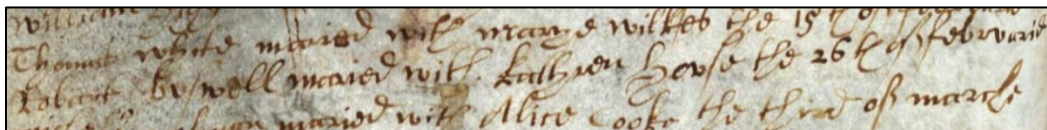 William
Thomas white maried with marye wilkes the 15th of
Robart boswell maried with Kathren House the 26th of februarie
maried with Alice Cooke the third of marche